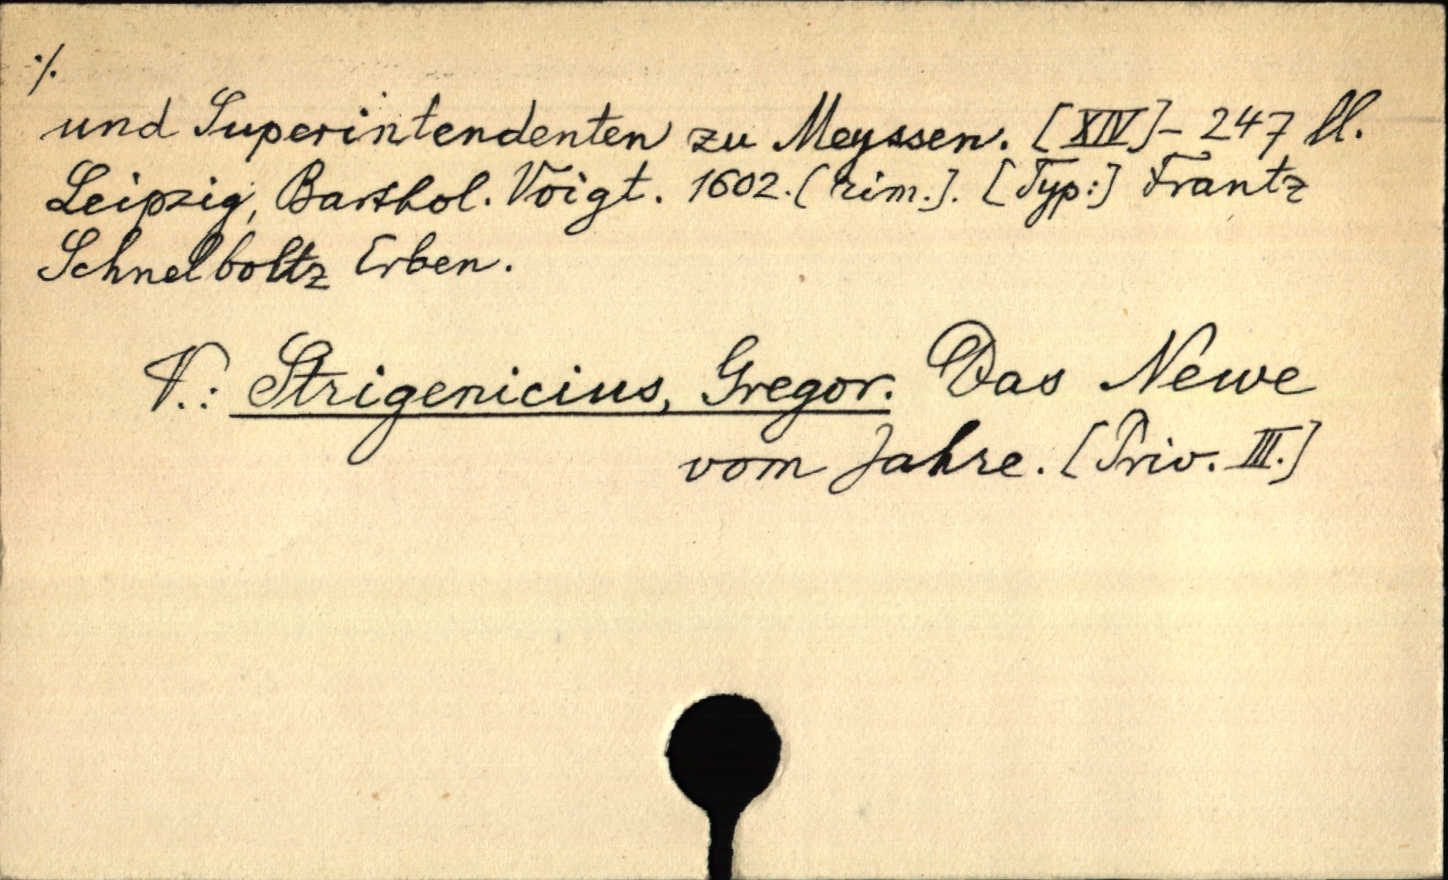 ·/.
und Superintendenten zu Meyssen. [XIV]- 247 fl.
Leipzig, Barthol. Voigt. 1602. (rim.]. [Typ:] Frantz
Schnelboltz Erben.
V.: Strigenicius, Gregor. Das Newe
vom Jahre. [Priv. III.]